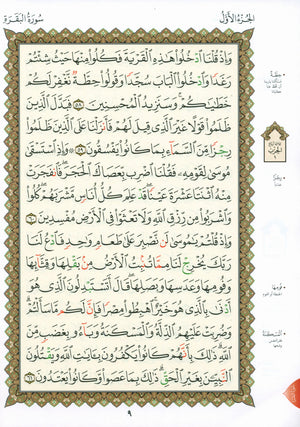 الجزء الأول
سورة البقرة
وَإِذْ قُلْنَا ادْخُلُوا هَٰذِهِ الْقَرْيَةَ فَكُلُوا مِنْهَا حَيْثُ شِئْتُمْ
رَغَدًا وَادْخُلُوا الْبَابَ سُجَّدًا وَقُولُوا حِطَّةٌ نَغْفِرْ لَكُمْ
خَطَايَاكُمْ وَسَنَزِيدُ الْمُحْسِنِينَ ٥٨ فَبَدَّلَ الَّذِينَ
ظَلَمُوا قَوْلًا غَيْرَ الَّذِي قِيلَ لَهُمْ فَأَنزَلْنَا عَلَى الَّذِينَ ظَلَمُوا
رِجْزًا مِنَ السَّمَاءِ بِمَا كَانُوا يَفْسُقُونَ ٥٩ وَإِذِ اسْتَسْقَىٰ
مُوسَىٰ لِقَوْمِهِ فَقُلْنَا اضْرِب بِعَصَاكَ الْحَجَرَ فَانفَجَرَتْ
مِنْهُ اثْنَتَا عَشْرَةَ عَيْنًا قَدْ عَلِمَ كُلُّ أُنَاسٍ مَشْرَبَهُمْ كُلُوا
وَاشْرَبُوا مِن رِزْقِ اللَّهِ وَلَا تَعْثَوْا فِي الْأَرْضِ مُفْسِدِينَ ٦٠
وَإِذْ قُلْتُمْ يَا مُوسَىٰ لَن نَصْبِرَ عَلَىٰ طَعَامٍ وَاحِدٍ فَادْعُ لَنَا
رَبَّكَ يُخْرِجْ لَنَا مِمَّا تُنبِتُ الْأَرْضُ مِن بَقْلِهَا وَقِثَّائِهَا
وَفُومِهَا وَعَدَسِهَا وَبَصَلِهَا قَالَ أَتَسْتَبْدِلُونَ الَّذِي هُوَ
أَدْنَىٰ بِالَّذِي هُوَ خَيْرٌ اهْبِطُوا مِصْرًا فَإِنَّ لَكُم مَا سَأَلْتُمْ
وَضُرِبَتْ عَلَيْهِمُ الذِّلَّةُ وَالْمَسْكَنَةُ وَبَاءُوا بِغَضَبٍ مِنَ
اللَّهِ ذَٰلِكَ بِأَنَّهُمْ كَانُوا يَكْفُرُونَ بِآيَاتِ اللَّهِ وَيَقْتُلُونَ
النَّبِيِّينَ بِغَيْرِ الْحَقِّ ذَٰلِكَ بِمَا عَصَوا وَكَانُوا يَعْتَدُونَ ٦١
٩